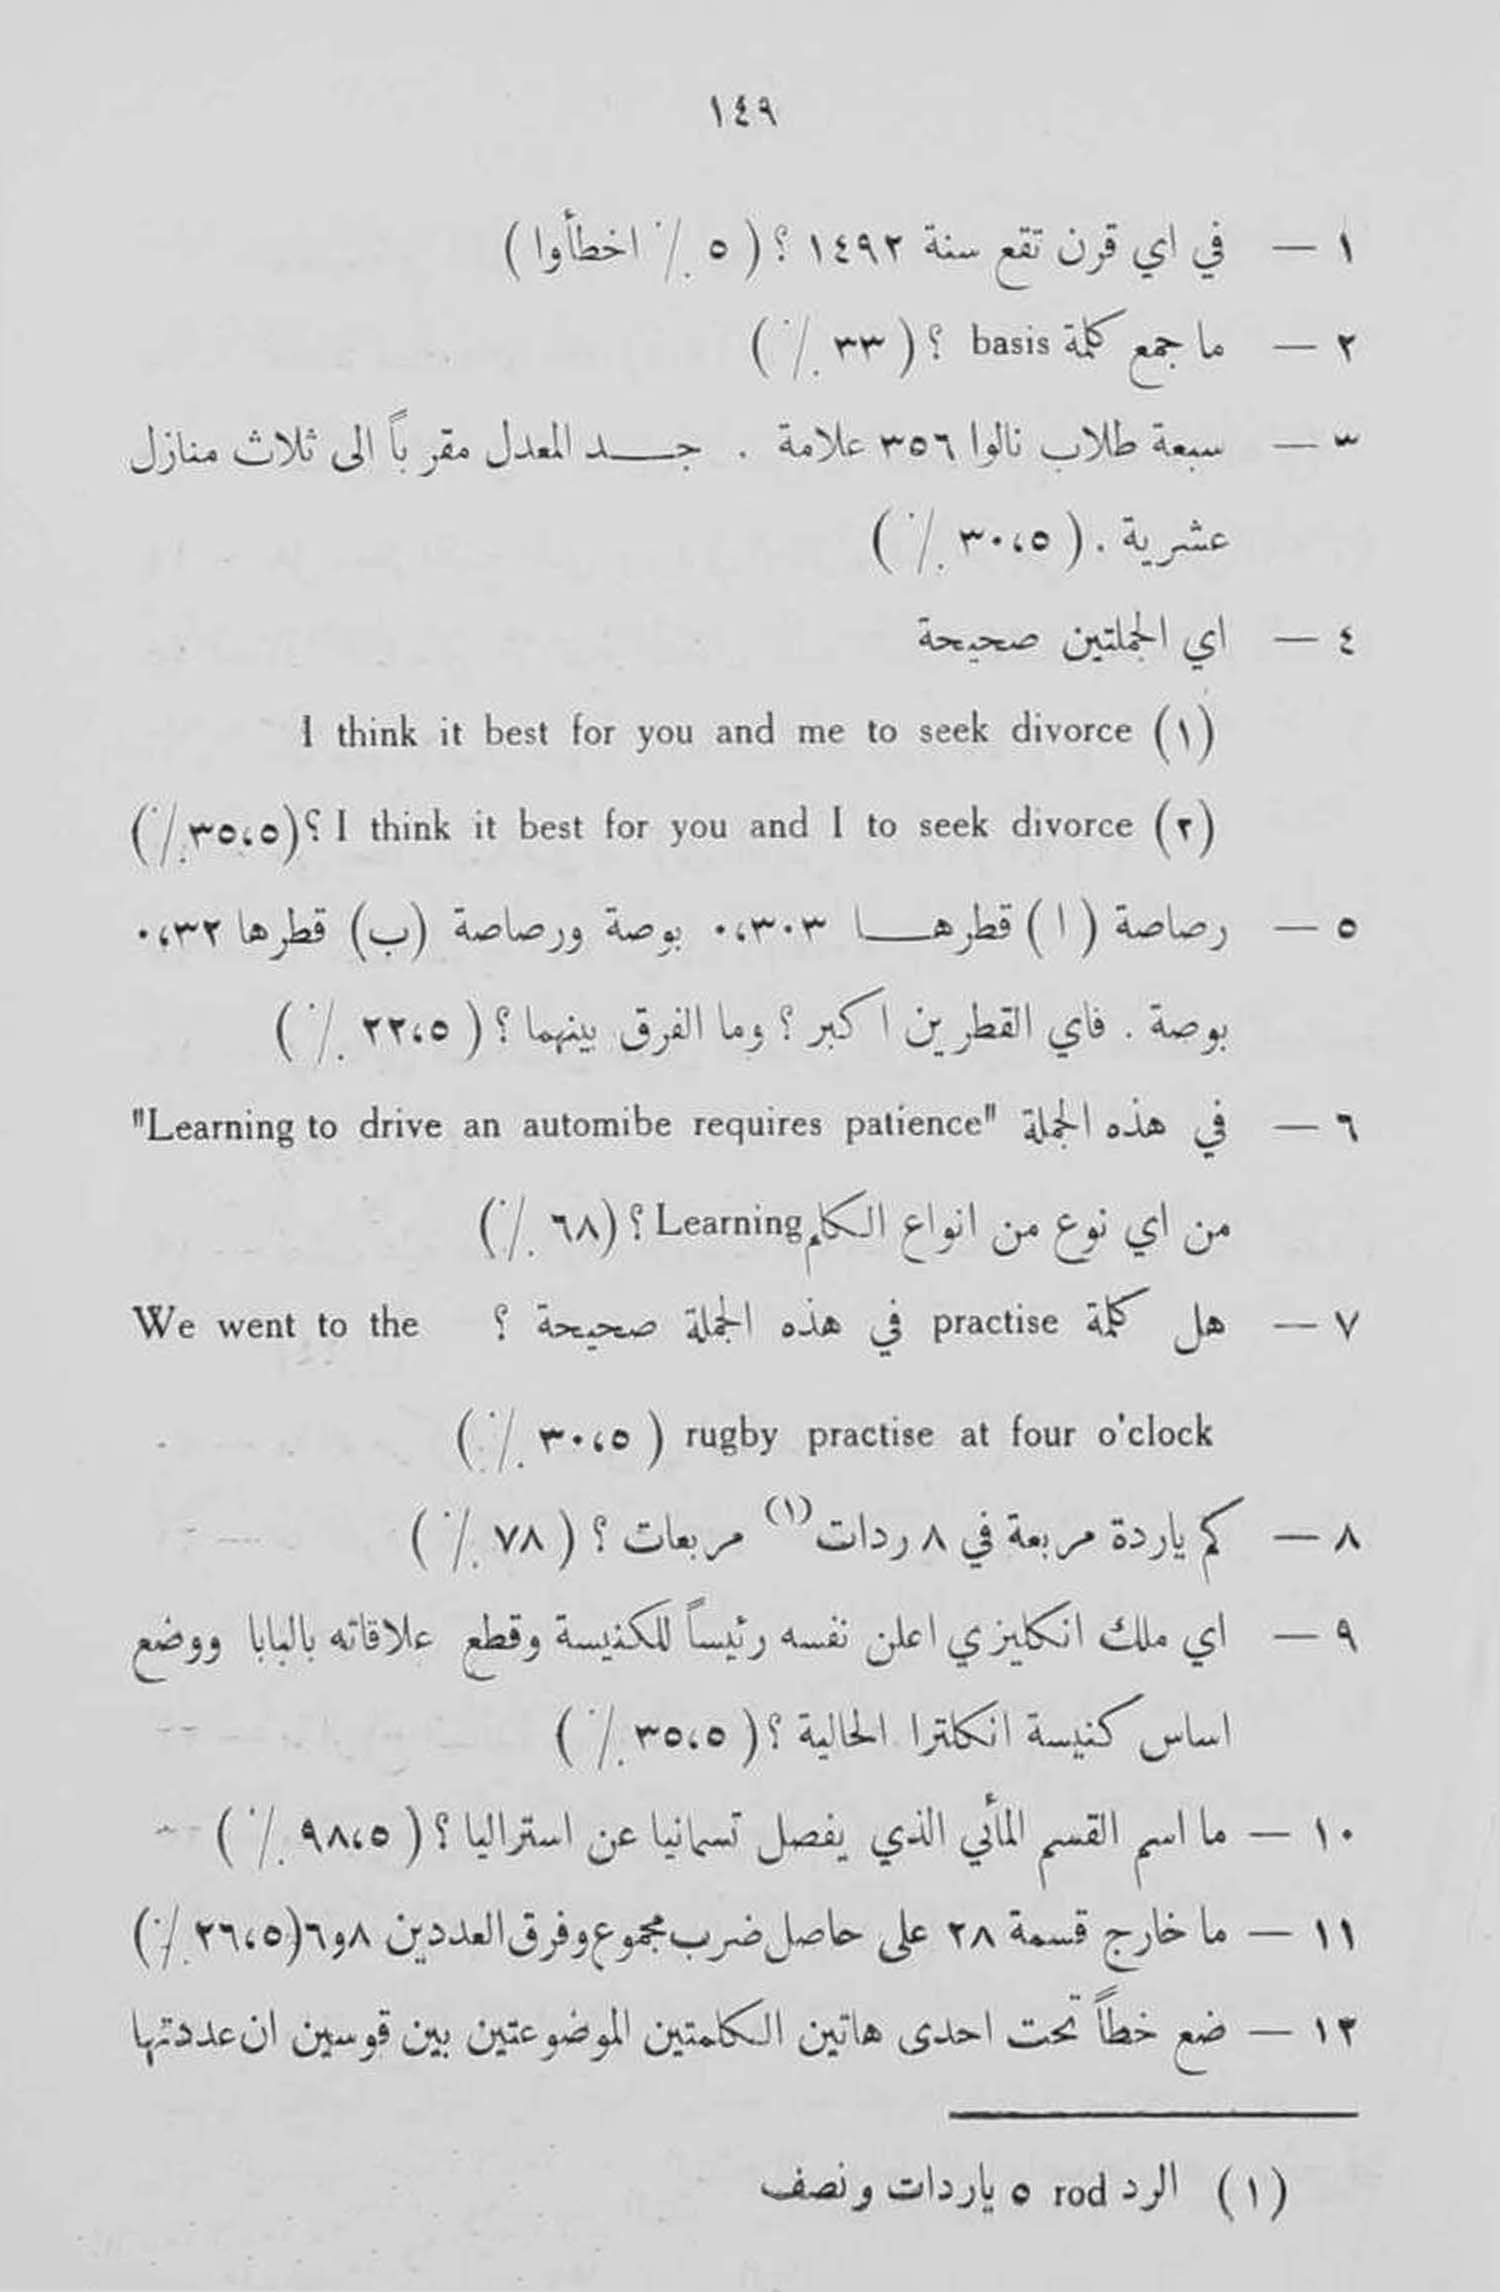 ١٤٩
١ — في اي قرن تقع سنة ١٤٩٢ ؟ ( ٥ ٪ اخطأوا )
٢ — ما جمع كلمة basis ؟ ( ٣٣ ٪ )
٣ — سبعة طلاب نالوا ٣٥٦ علامة . جد المعدل مقرباً الى ثلاث منازل
عشرية . ( ٣٠،٥ ٪ )
٤ — اي الجملتين صحيحة
(١) I think it best for you and me to seek divorce
(٢) I think it best for you and I to seek divorce ؟ (٣٥،٥ ٪)
٥ — رصاصة ( ا ) قطرها ٠،٣٠٣ بوصة ورصاصة (ب) قطرها ٠،٣٢
بوصة . فاي القطرين اكبر ؟ وما الفرق بينهما ؟ ( ٢٢،٥ ٪ )
٦ — في هذه الجملة "Learning to drive an automibe requires patience"
من اي نوع من انواع الكلم Learning ؟ (٦٨ ٪)
٧ — هل كلمة practise في هذه الجملة صحيحة ؟ We went to the
rugby practise at four o'clock ( ٣٠،٥ ٪)
٨ — كم ياردة مربعة في ٨ ردات (١) مربعات ؟ ( ٧٨ ٪ )
٩ — اي ملك انكليزي اعلن نفسه رئيساً للكنيسة وقطع علاقاته بالبابا ووضع
اساس كنيسة انكلترا الحالية ؟ ( ٣٥،٥ ٪ )
١٠ — ما اسم القسم المأئي الذي يفصل تسمانيا عن استراليا ؟ ( ٩٨،٥ ٪ )
١١ — ما خارج قسمة ٢٨ على حاصل ضرب مجموع وفرق العددين ٨ و٦ (٢٦،٥ ٪)
١٢ — ضع خطاً تحت احدى هاتين الكلمتين الموضوعتين بين قوسين ان عددتها
(١) الرد rod ٥ ياردات ونصف